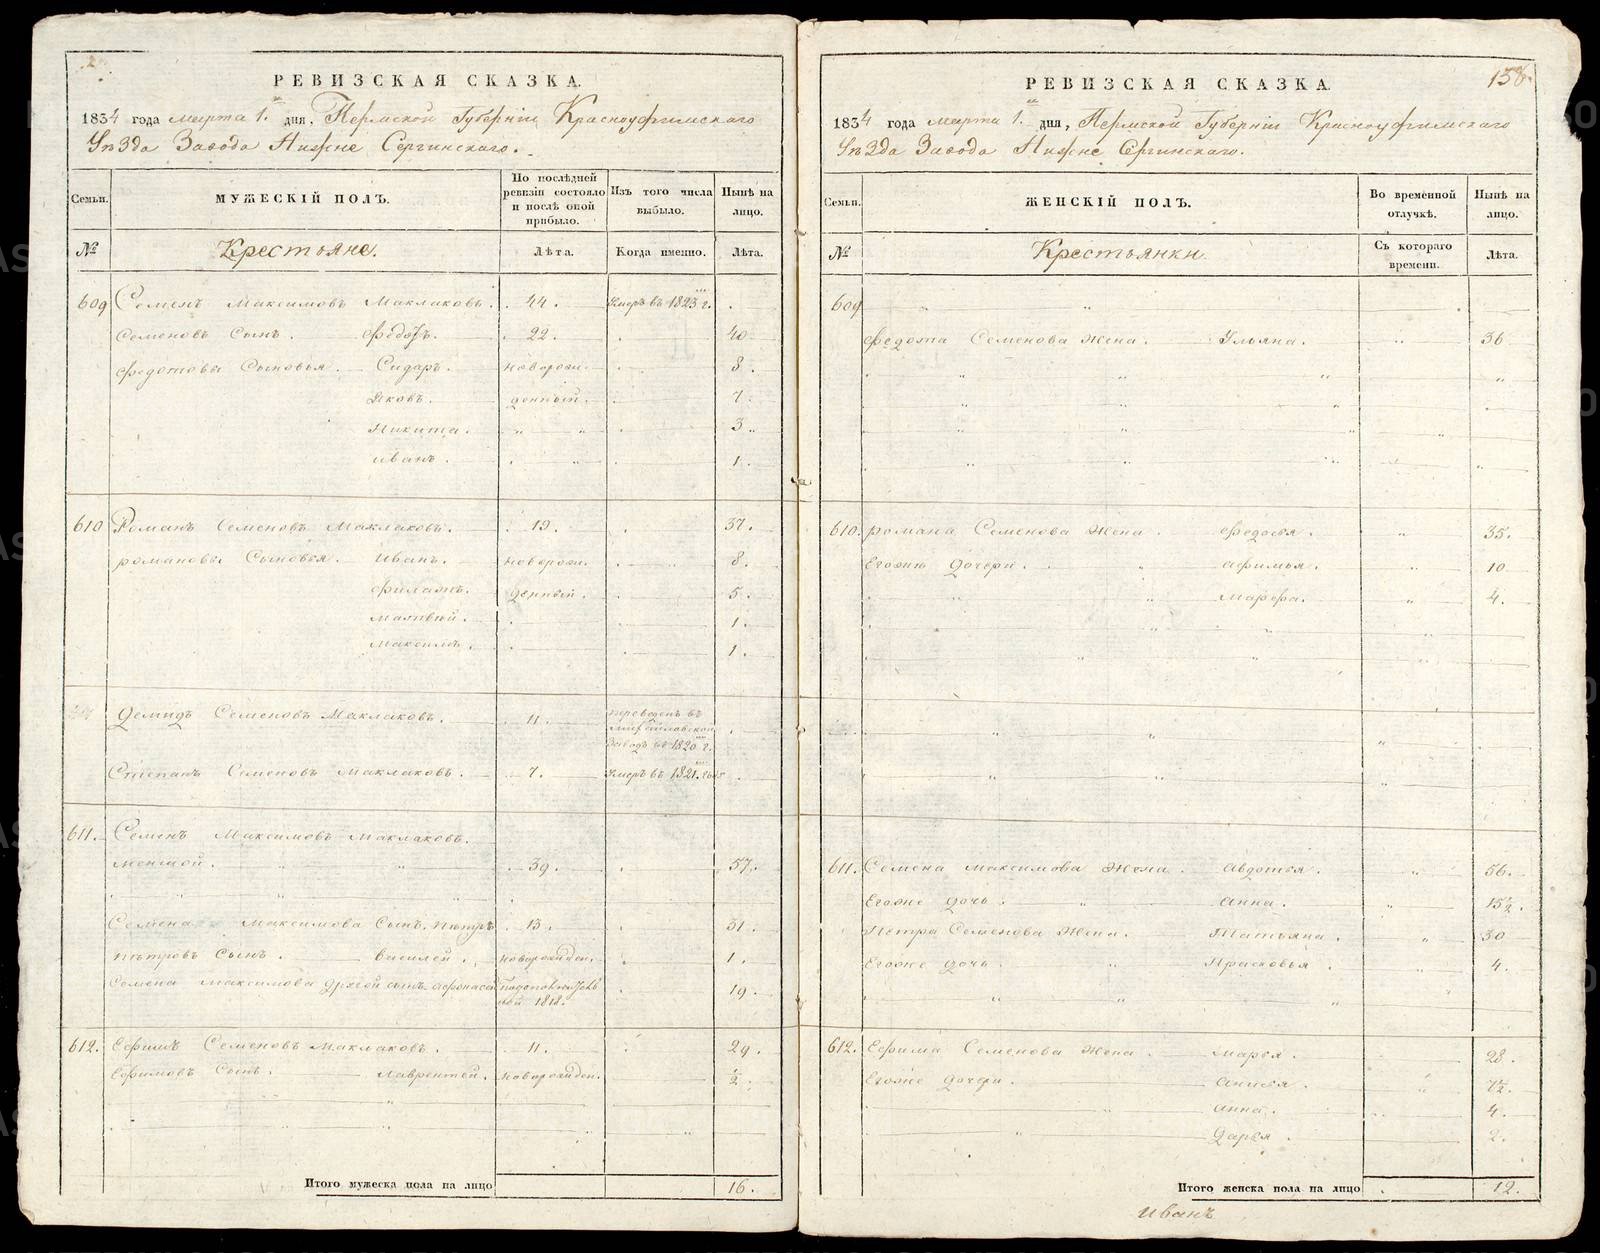 РЕВИЗСКАЯ СКАЗКА.
1834 года марта 1. дня, Пермской Губерніи Красноуфимскаго
Уѣзда Завода Нижне Сергинскаго.
Семьи. МУЖЕСКІЙ ПОЛЪ. По послѣдней ревизіи состояло и послѣ оной прибыло. Изъ того числа выбыло. Нынѣ на лицо.
№ Крестьяне. Лѣта. Когда именно. Лѣта.
609 Семенъ Максимовъ Маклаковъ. 44. Умеръ въ 1823 г.
Семеновъ Сынъ. Федотъ. 22. 40
Федотовы Сыновья. Сидаръ. новорож- 8.
Яковъ. денный. 7.
Никита. 3.
иванъ. 1.
610 Романъ Семеновъ Маклаковъ. 19. 37.
романовы Сыновья. Иванъ. новорож- 8.
Филатъ. денный. 5.
матвѣй. 1.
Максимъ. 1.
Демидъ Семеновъ Маклаковъ. 11. переведенъ въ
Михайловской
заводъ въ 1820 г.
Степанъ Семеновъ Маклаковъ. 7. Умеръ въ 1821.
611. Семенъ Максимовъ Маклаковъ.
меншой. 39. 57.
Семена Максимова Сынъ. Пѣтръ 13. 31.
Пѣтровъ Сынъ. Василей. новорожден. 1.
Семена Максимова другой сынъ 19.
1818.
612. Ефимъ Семеновъ Маклаковъ. 11. 29.
Ефимовъ Сынъ. Лаврентей. новорожден. ½.
Итого мужеска пола на лицо 16.
158.
РЕВИЗСКАЯ СКАЗКА.
1834 года марта 1. дня, Пермской Губерніи Красноуфимскаго
Уѣзда Завода Нижне Сергинскаго.
Семьи. ЖЕНСКІЙ ПОЛЪ. Во временной отлучкѣ. Нынѣ на лицо.
№ Крестьянки. Съ котораго времени. Лѣта.
609
Федота Семенова жена. Ульяна. 36
610. романа Семенова Жена. Федосья. 35.
Егожъ дочери. Афимья. 10
Марфа. 4.
611. Семена Максимова Жена. Авдотья. 56.
Егоже дочь. Анна. 15½.
Петра Семенова Жена. Татьяна. 30
Егоже дочь. Прасковья. 4.
612. Ефима Семенова Жена. Марья. 28.
Егоже дочери. Анисья. 7½.
Анна. 4.
Дарья. 2.
Итого женска пола на лицо 12.
Иванъ